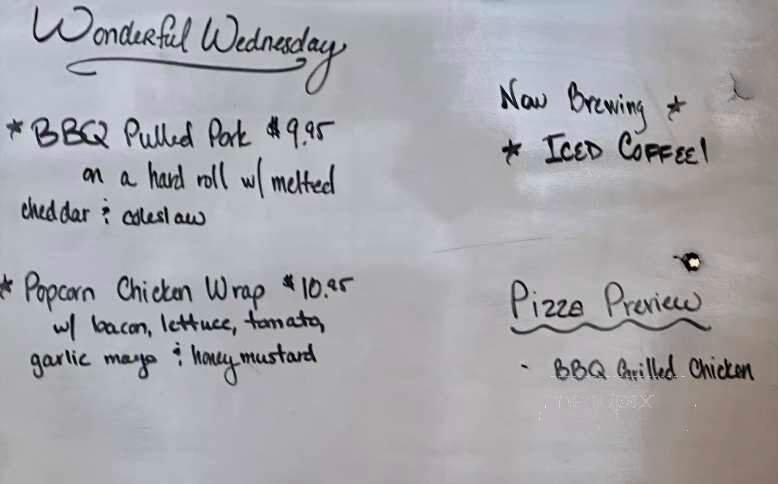 Wonderful Wednesday
* BBQ Pulled Pork $9.95
on a hard roll w/ melted
cheddar & coleslaw
* Popcorn Chicken Wrap $10.95
w/ bacon, lettuce, tomato,
garlic mayo & honey mustard
Now Brewing *
* ICED COFFEE!
Pizza Preview
- BBQ Grilled Chicken